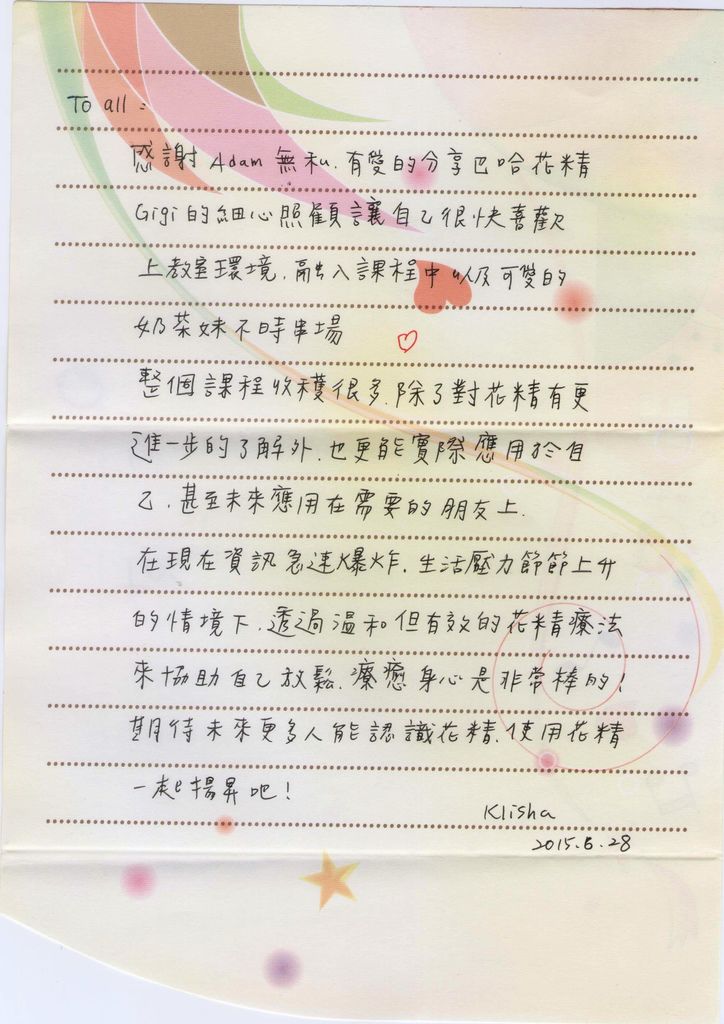 To all :
感謝 Adam 無私.有愛的分享巴哈花精
Gigi 的細心照顧讓自己很快喜歡
上教室環境.融入課程中以及可愛的
奶茶妹不時串場
整個課程收穫很多.除了對花精有更
進一步的了解外.也更能實際應用於自
己.甚至未來應用在需要的朋友上.
在現在資訊急速爆炸.生活壓力節節上升
的情境下.透過溫和但有效的花精療法
來協助自己放鬆.療癒身心是非常棒的!
期待未來更多人能認識花精.使用花精
一起揚昇吧!
Klisha
2015.6.28